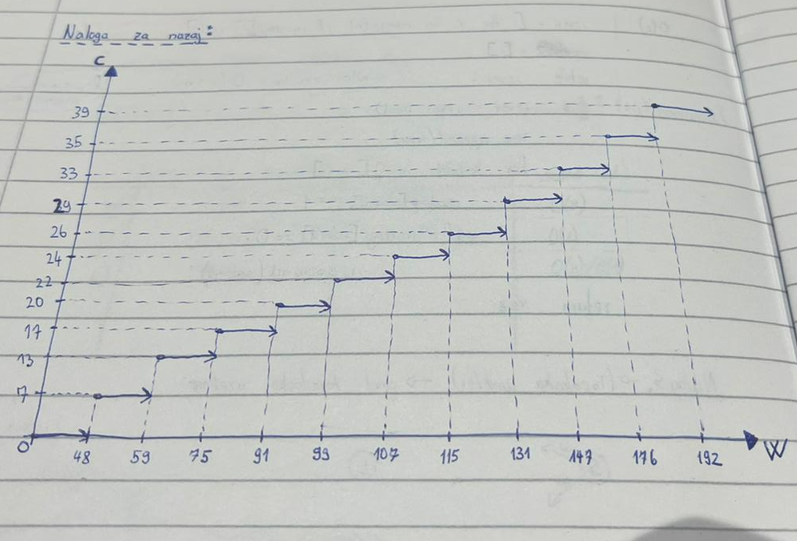 Naloga za nazaj:
C
39
35
33
29
26
24
22
20
17
13
7
0 48 59 75 91 99 107 115 131 147 176 192 W